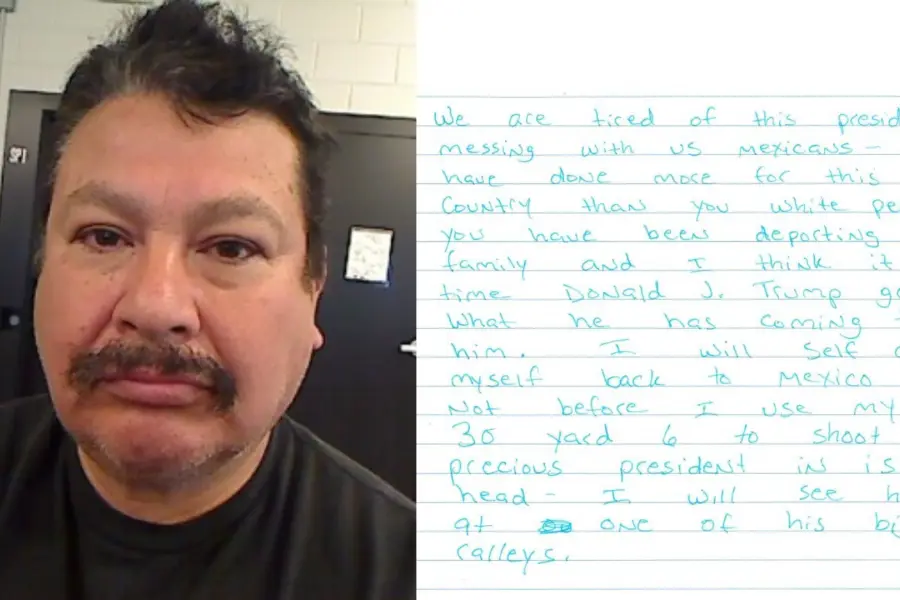 We are tired of this presid
messing with us Mexicans -
have done more for this
Country than you white pe
you have been deporting
family and I think it
time Donald J. Trump g
What he has coming
him. I will self
myself back to Mexico
Not before I use my
30 yard 6 to shoot
precious president in is
head - I will see h
at one of his bi
ralleys.